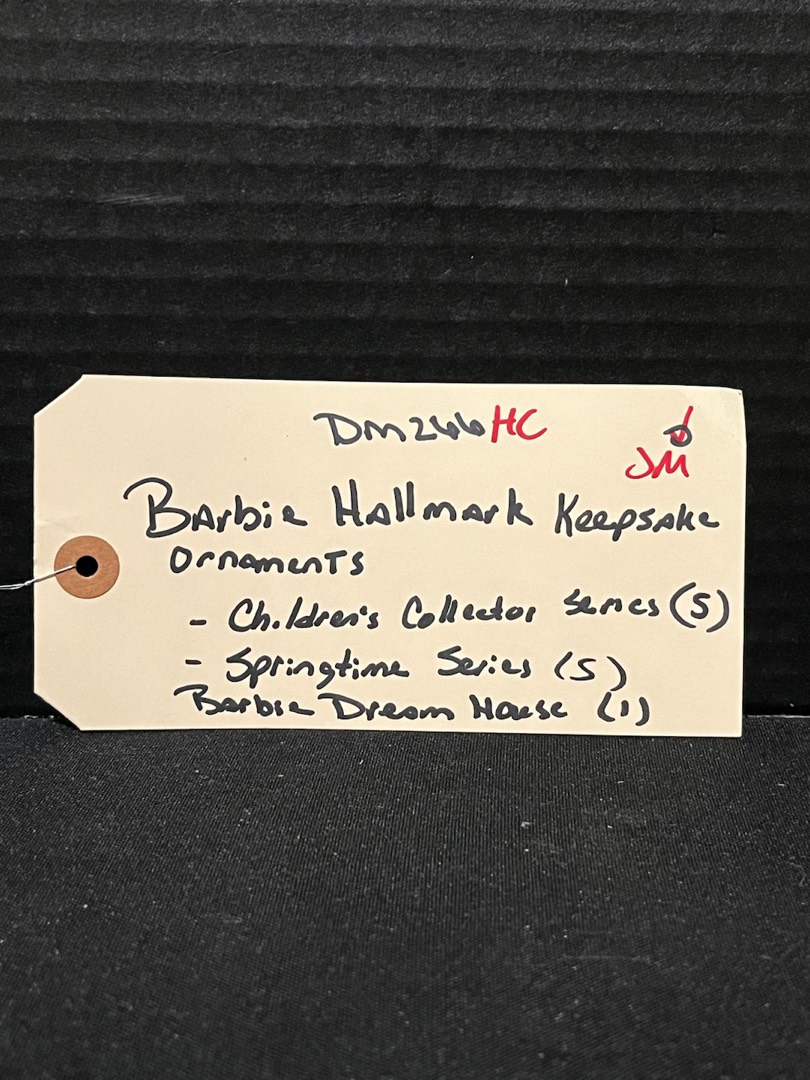 DM266HC
JM
Barbie Hallmark Keepsake
Ornaments
- Children's Collector Series (5)
- Springtime Series (5)
Barbie Dream House (1)